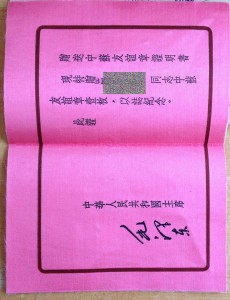 贈送中蘇友誼章證明書
現特贈 同志中蘇
友誼章壹枚，以誌紀念。
此證
中華人民共和國主席
毛澤东